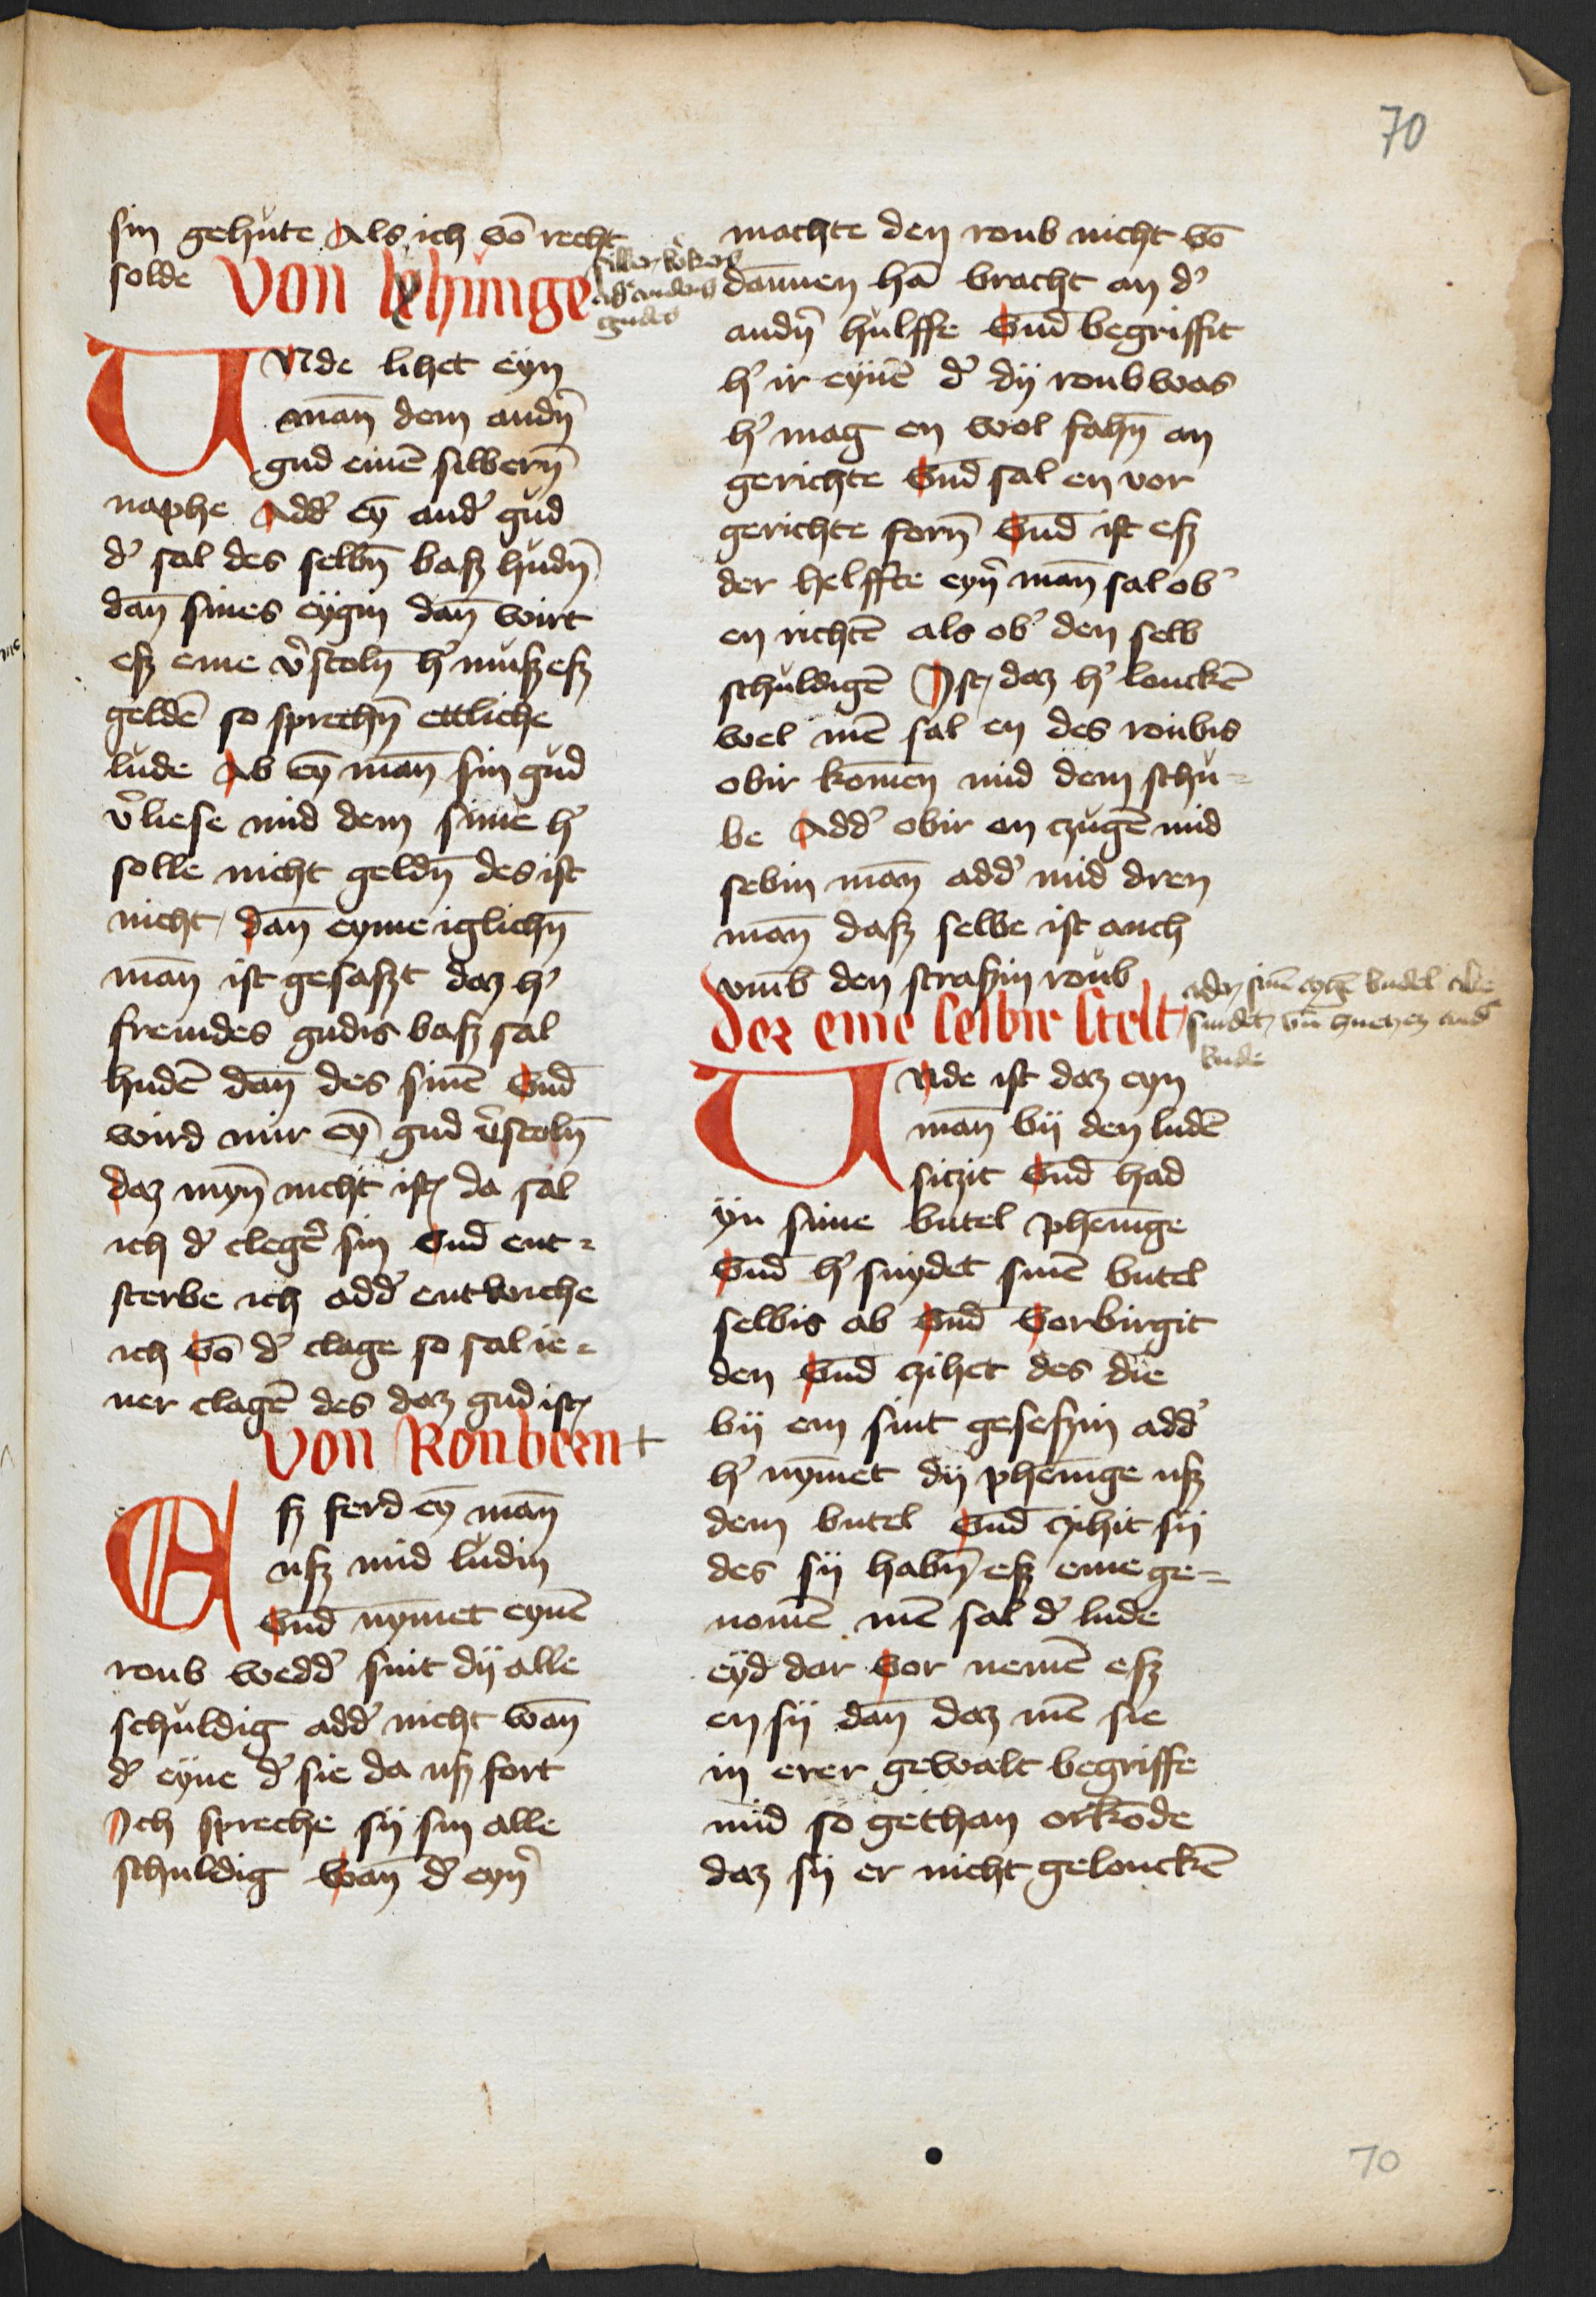 70
sin gehute Als ich vō recht
solde Von lehunge
silbern kokers
adˀ anders
gudes
VNde lihet eyn
man̄ dem andn̄
gud einē silbern̄
naphe Addˀ eȳ andˀ gud
dˀ sal des selbn̄ basz hudn̄
dan̄ sines eygin dan̄ wirt
esz eme vˀstoln̄ hˀ muszesz
geldē so sprechn̄ ettliche
lude Ab eȳ man̄ sin gud
vˀliese mid dem sime hˀ
solle nicht geldn̄ des ist
nicht dan̄ eyme iglichn̄
man̄ ist gesaszt daz hˀ
fremdes gudis basz sal
hudē dan̄ des sinē Vnd̄
wird mir eȳ gud vˀstoln̄
daz myn̄ nicht ist da sal
ich dˀ clegeˀ sin Vnd̄ ent-
sterbe ich addˀ entwiche
ich Vō dˀ clage so sal ie-
ner clagē des daz gud ist
Von Roubern +
ESz ferd eȳ man̄
usz mid ludin
Vnd̄ nȳmet eynē
roub weddˀ sint dij alle
schuldig addˀ nicht wan̄
dˀ eyne dˀ sie da usz fort
Ich spreche sij sin alle
schuldig Wan̄ dˀ eynˀ
machte den roub nicht vō
dannen hā bracht an dˀ
andn̄ hulffe Vnd̄ begriffit
hˀ ir eynē dˀ dij roub was
hˀ mag en wol fahn̄ an
gerichte Vnd̄ sal en vor
gerichte forn̄ Vnd̄ ist esz
der helffte eynˀ man̄ sal obˀ
en richtē als obˀ den selb
schuldigē Ist daz hˀ louckē
wel mē sal en des roubis
obir komen mid dem schu-
be Addˀ obir en czugē mid
sebin man̄ addˀ mid dren
man̄ dasz selbe ist auch
vmb den straszin roub
Der eme selbir stelt
adˀ sinē eygē budel abe
snidet vn̄ ander
lude
VNde ist daz eyn
man̄ bij den ludē
siczit Vnd̄ had
yn sime butel phenige
Vnd̄ hˀ snydet sinē butel
selbis ab Vnd̄ Vorbirgit
den Vnd̄ czihet des die
bij em sint geseszin addˀ
hˀ nȳmet dij phenige usz
dem butel Vnd̄ czihit sij
des sij habn̄ esz eme ge-
nomē mē sal dˀ lude
eyd dar Vor nemē esz
en sij dan̄ daz mē sie
in erer gewalt begriffe
mid so gethan orkōde
daz sij er nicht gelouckē
70